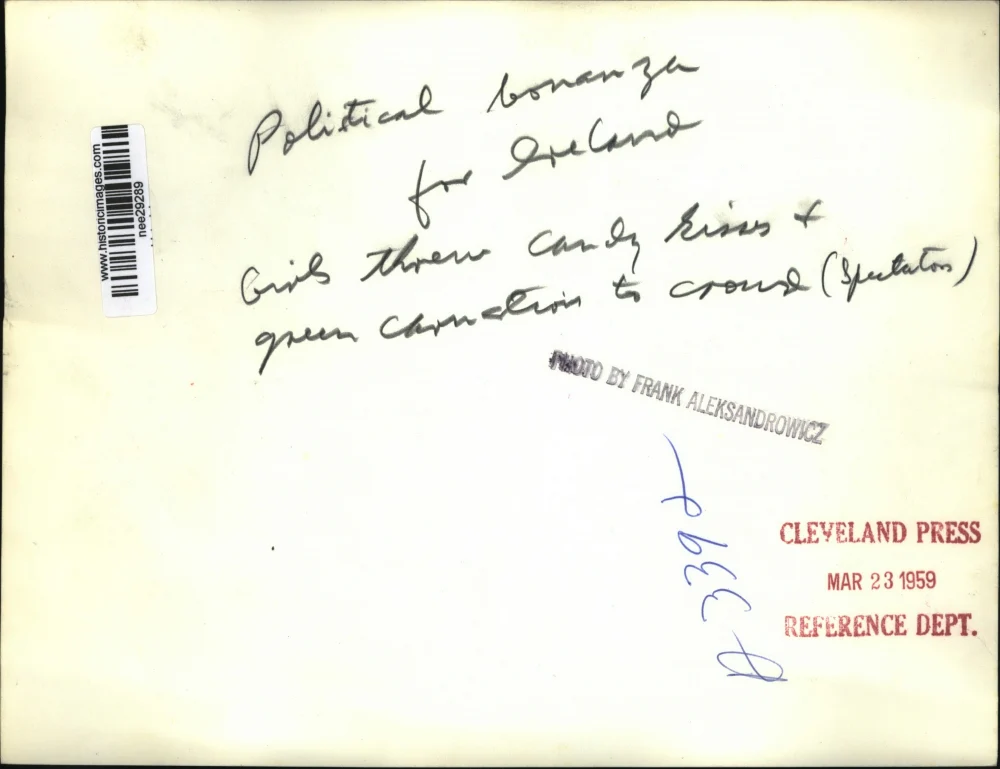 Political bonanza
for Ireland
Girls threw candy kisses +
green carnation to crowd (Spectators)
www.historicimages.com
nee29289
PHOTO BY FRANK ALEKSANDROWICZ
CLEVELAND PRESS
MAR 23 1959
REFERENCE DEPT.